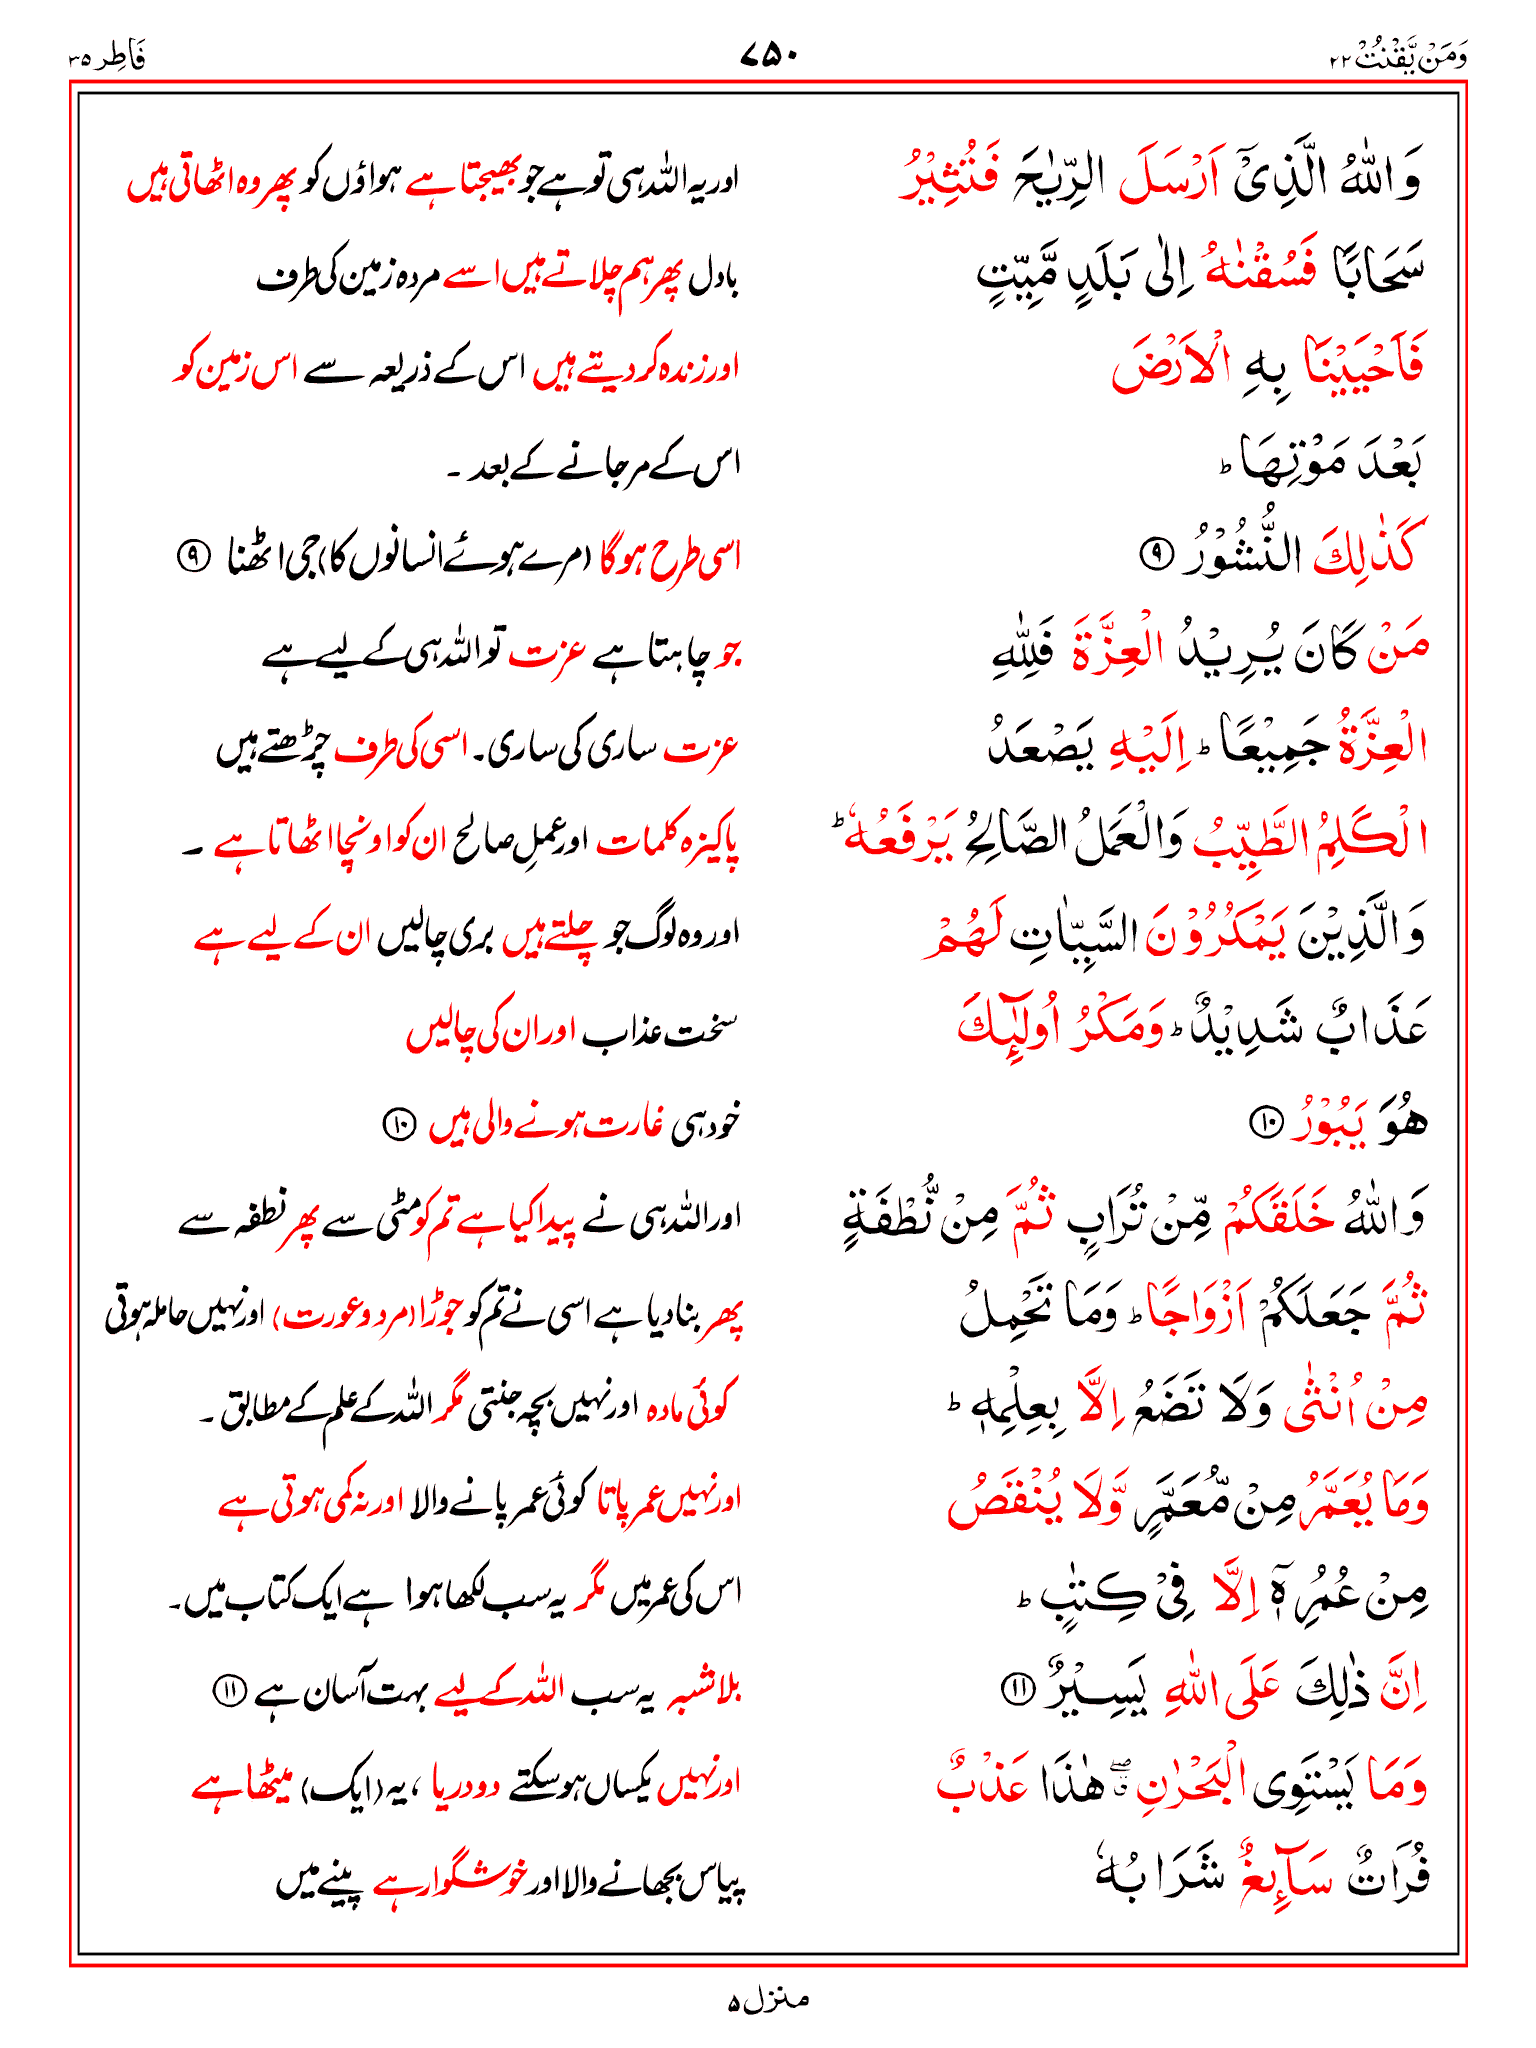 وَمَنْ يَّقْنُتْ ۲۲ ۷۵۰ فَاطِر ۳۵
وَاللّٰهُ الَّذِیْۤ اَرْسَلَ الرِّیٰحَ فَتُثِیْرُ اور یہ اللہ ہی تو ہے جو بھیجتا ہے ہواؤں کو پھر وہ اٹھاتی ہیں
سَحَابًا فَسُقْنٰهُ اِلٰی بَلَدٍ مَّیِّتٍ بادل پھر ہم چلاتے ہیں اسے مردہ زمین کی طرف
فَاَحْیَیْنَا بِهِ الْاَرْضَ اور زندہ کر دیتے ہیں اس کے ذریعہ سے اس زمین کو
بَعْدَ مَوْتِهَا ؕ اس کے مر جانے کے بعد ۔
كَذٰلِكَ النُّشُوْرُ ۹ اسی طرح ہوگا (مرے ہوئے انسانوں کا) جی اٹھنا ۹
مَنْ كَانَ یُرِیْدُ الْعِزَّةَ فَلِلّٰهِ جو چاہتا ہے عزت تو اللہ ہی کے لیے ہے
الْعِزَّةُ جَمِیْعًا ؕ اِلَیْهِ یَصْعَدُ عزت ساری کی ساری۔ اسی کی طرف چڑھتے ہیں
الْكَلِمُ الطَّیِّبُ وَالْعَمَلُ الصَّالِحُ یَرْفَعُهٗ ؕ پاکیزہ کلمات اور عملِ صالح ان کو اونچا اٹھاتا ہے ۔
وَالَّذِیْنَ یَمْكُرُوْنَ السَّیِّاٰتِ لَهُمْ اور وہ لوگ جو چلتے ہیں بری چالیں ان کے لیے ہے
عَذَابٌ شَدِیْدٌ ؕ وَمَكْرُ اُولٰٓئِكَ سخت عذاب اور ان کی چالیں
هُوَ یَبُوْرُ ۱۰ خود ہی غارت ہونے والی ہیں ۱۰
وَاللّٰهُ خَلَقَكُمْ مِّنْ تُرَابٍ ثُمَّ مِنْ نُّطْفَةٍ اور اللہ ہی نے پیدا کیا ہے تم کو مٹی سے پھر نطفہ سے
ثُمَّ جَعَلَكُمْ اَزْوَاجًا ؕ وَمَا تَحْمِلُ پھر بنا دیا ہے اسی نے تم کو جوڑا (مرد و عورت) اور نہیں حاملہ ہوتی
مِنْ اُنْثٰی وَلَا تَضَعُ اِلَّا بِعِلْمِهٖ ؕ کوئی مادہ اور نہیں بچہ جنتی مگر اللہ کے علم کے مطابق ۔
وَمَا یُعَمَّرُ مِنْ مُّعَمَّرٍ وَّلَا یُنْقَصُ اور نہیں عمر پاتا کوئی عمر پانے والا اور نہ کمی ہوتی ہے
مِنْ عُمُرِهٖۤ اِلَّا فِیْ كِتٰبٍ ؕ اس کی عمر میں مگر یہ سب لکھا ہوا ہے ایک کتاب میں۔
اِنَّ ذٰلِكَ عَلَی اللّٰهِ یَسِیْرٌ ۱۱ بلاشبہ یہ سب اللہ کے لیے بہت آسان ہے ۱۱
وَمَا یَسْتَوِی الْبَحْرٰنِ ۖۗ هٰذَا عَذْبٌ اور نہیں یکساں ہو سکتے دو دریا، یہ (ایک) میٹھا ہے
فُرَاتٌ سَآىِٕغٌ شَرَابُهٗ پیاس بجھانے والا اور خوشگوار ہے پینے میں
منزل ۵